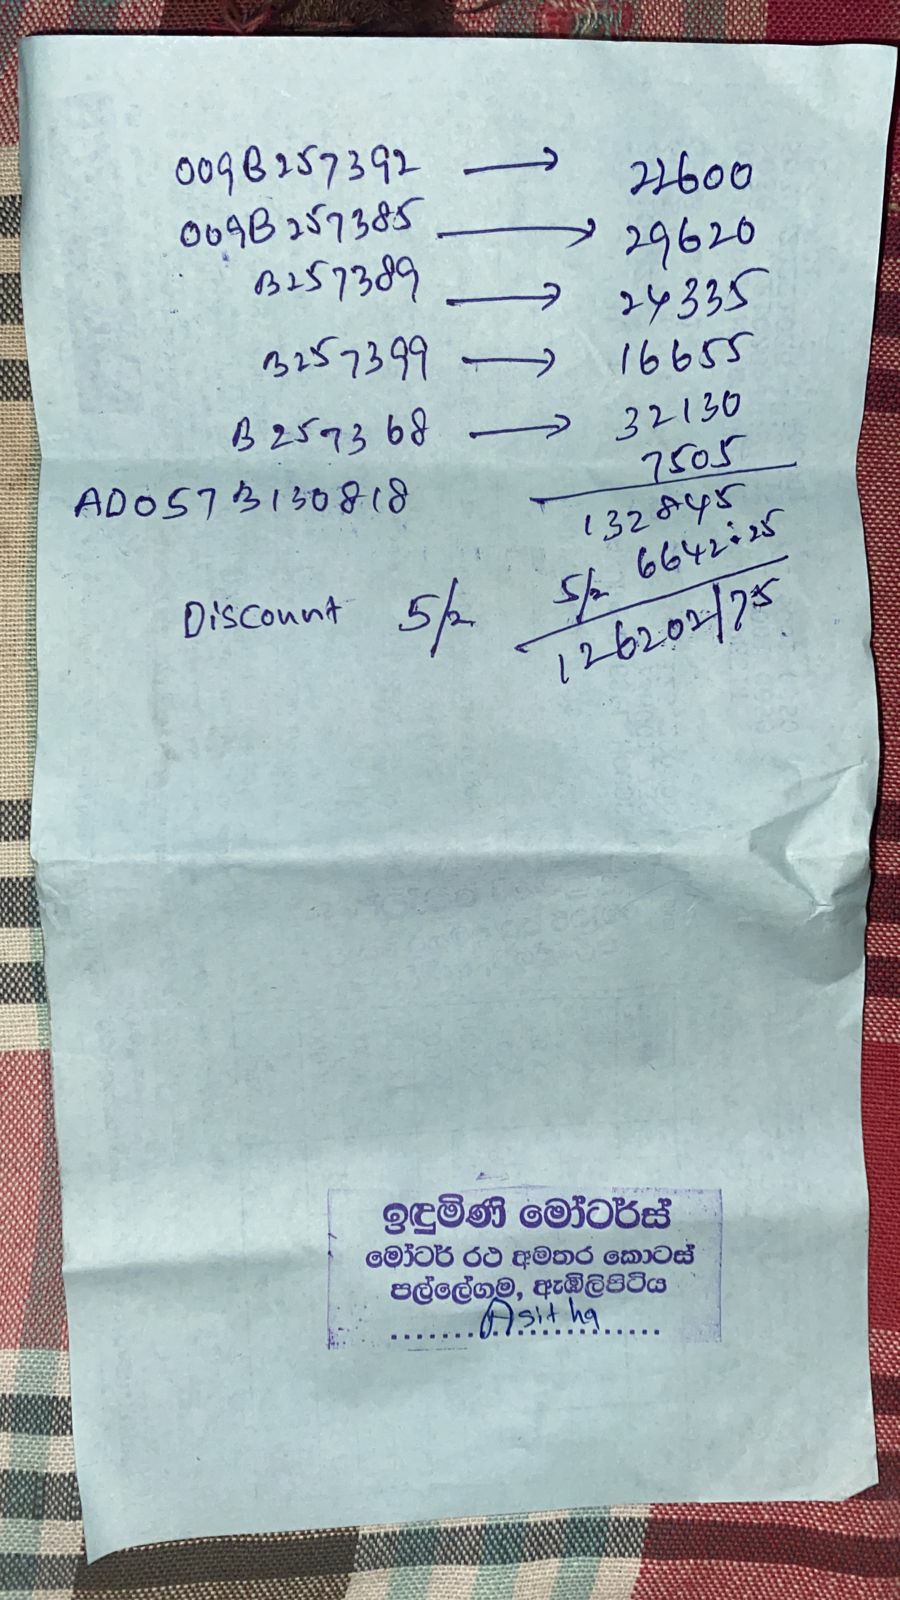 009B257392 → 22600
009B257385 → 29620
B257389 → 24335
B257399 → 16655
B257368 → 32130
AD057B130818 7505
132845
5/. 6642.25
Discount 5/. 126202/75
ඉඳුමිණි මෝටර්ස්
මෝටර් රථ අමතර කොටස්
පල්ලේගම, ඇඹිලිපිටිය
Asitha